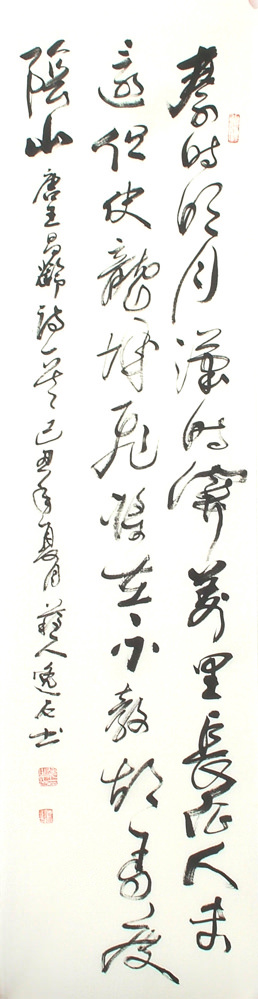 秦時明月漢時關萬里長征人未
還但使龍城飛將在不教胡馬度
陰山 唐王昌齡詩一首 己丑年夏月 藝人逸石書